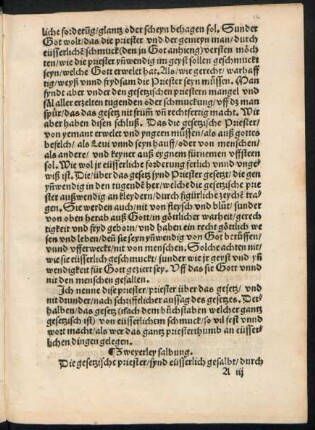 liche forderũg/glantz oder scheyn behagen sol. Sunder
Got wolt/das die priester vnd der gemeyn man/durch
eüsserlich schmuck(den jn Got anhieng)versten möch
ten/wie die priester yñwendig im geyst sollen geschmuckt
seyn/welche Gott erwelet hat. Als/wie gerecht/warhaff
tig/weyß/vnd frydsam die Priester seyn müssen. Man
fyndt aber vnder den gesetzischen priestern mangel vnd
fäl aller erzelten tugenden oder schmuckung/vff dz man
spür/das das gesetz nit früm vñ rechtfertig macht. Wir
aber haben disen schluß. Das die gesetzische Priester/
von yemant erwelet vnd yngeen müssen/als auß gottes
befelch/als Leui vnnd seyn hauff/oder von menschen/
als andere/vnd keyner auß eygnem fürnemen vffsteen
sol. Wie wol jr eüsserliche forderung ferlich vnnd vnge-
wiß ist. Die/über das gesetz synd Priester gesetz/die gen
yñwendig in den tugendẽ her/welche die gesetzische prie
ster außwendig an kleydern/durch figürliche zeychẽ tra-
gen. Sie werden auch/nit von fleysch vnd blüt/sunder
von oben herab auß Gott/in göttlicher warheit/gerech
tigkeit vnd fryd geborn/vnd haben ein recht göttlich we
sen vnd leben/deñ sie seyn yñwendig von Got berüffen/
vnnd vfferweckt/nit von menschen. Solche achten nit/
wie sie eüsserlich geschmuckt/sunder wie jr geyst vnd yñ
wendigkeit für Gott geziert sey. Vff das sie Gott vnnd
nit den menschen gefallen.
Ich nenne dise priester/priester über das gesetz/vnd
nit drunder/nach schrifftlicher aussag des gesetzes. Der-
halben/das gesetz (nach dem bůchstaben welcher gantz
gesetzisch ist) von eüsserlichem schmuck/so vil fest vnnd
wort macht/als wer das gantz priesterthumb an eüsser-
lichen dingen gelegen.
¶Zweyerley salbung.
Die gesetzische priester/synd eüsserlich gesalbt/durch
A iij